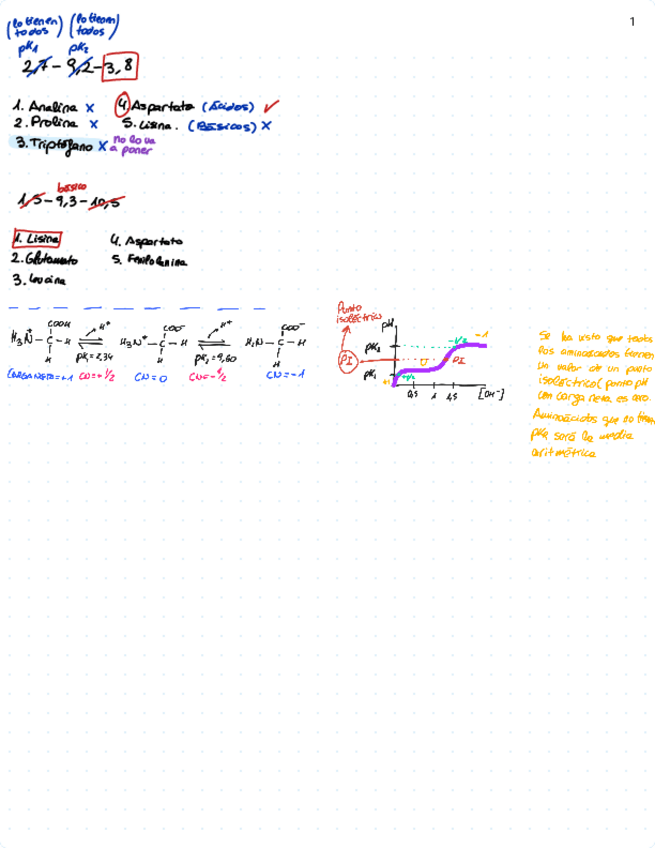 1
(Lo tienen todos) (Lo tienen todos)
pK1 pK2
2,7 - 9,2 - 3,8
1. Analina X
2. Prolina X
3. Triptófano X no lo va a poner
4. Aspartato (Ácidos) ✓
5. Lisina. (Básicos) X
básico
1,5 - 9,3 - 10,5
1. Lisina
2. Glutamato
3. Leucina
4. Aspartato
5. Fenilalanina
COOH H+ COO- H+ COO-
H3N+ - C - H H3N+ - C - H H2N - C - H
H H H
pK1 = 2,34 pK2 = 9,60
CARGA NETA = +1 CN = + 1/2 CN = 0 CN = - 1/2 CN = -1
Punto isoeléctrico
pH
pK2
PI
pK1
-1/2 -1
0 PI
+1 +1/2
0,5 1 1,5 [OH-]
Se ha visto que todos
los aminoácidos tienen
un valor de un punto
isoeléctrico (punto pH
con carga neta es cero.
Aminoácidos que no tienen
pKR será la media
aritmética